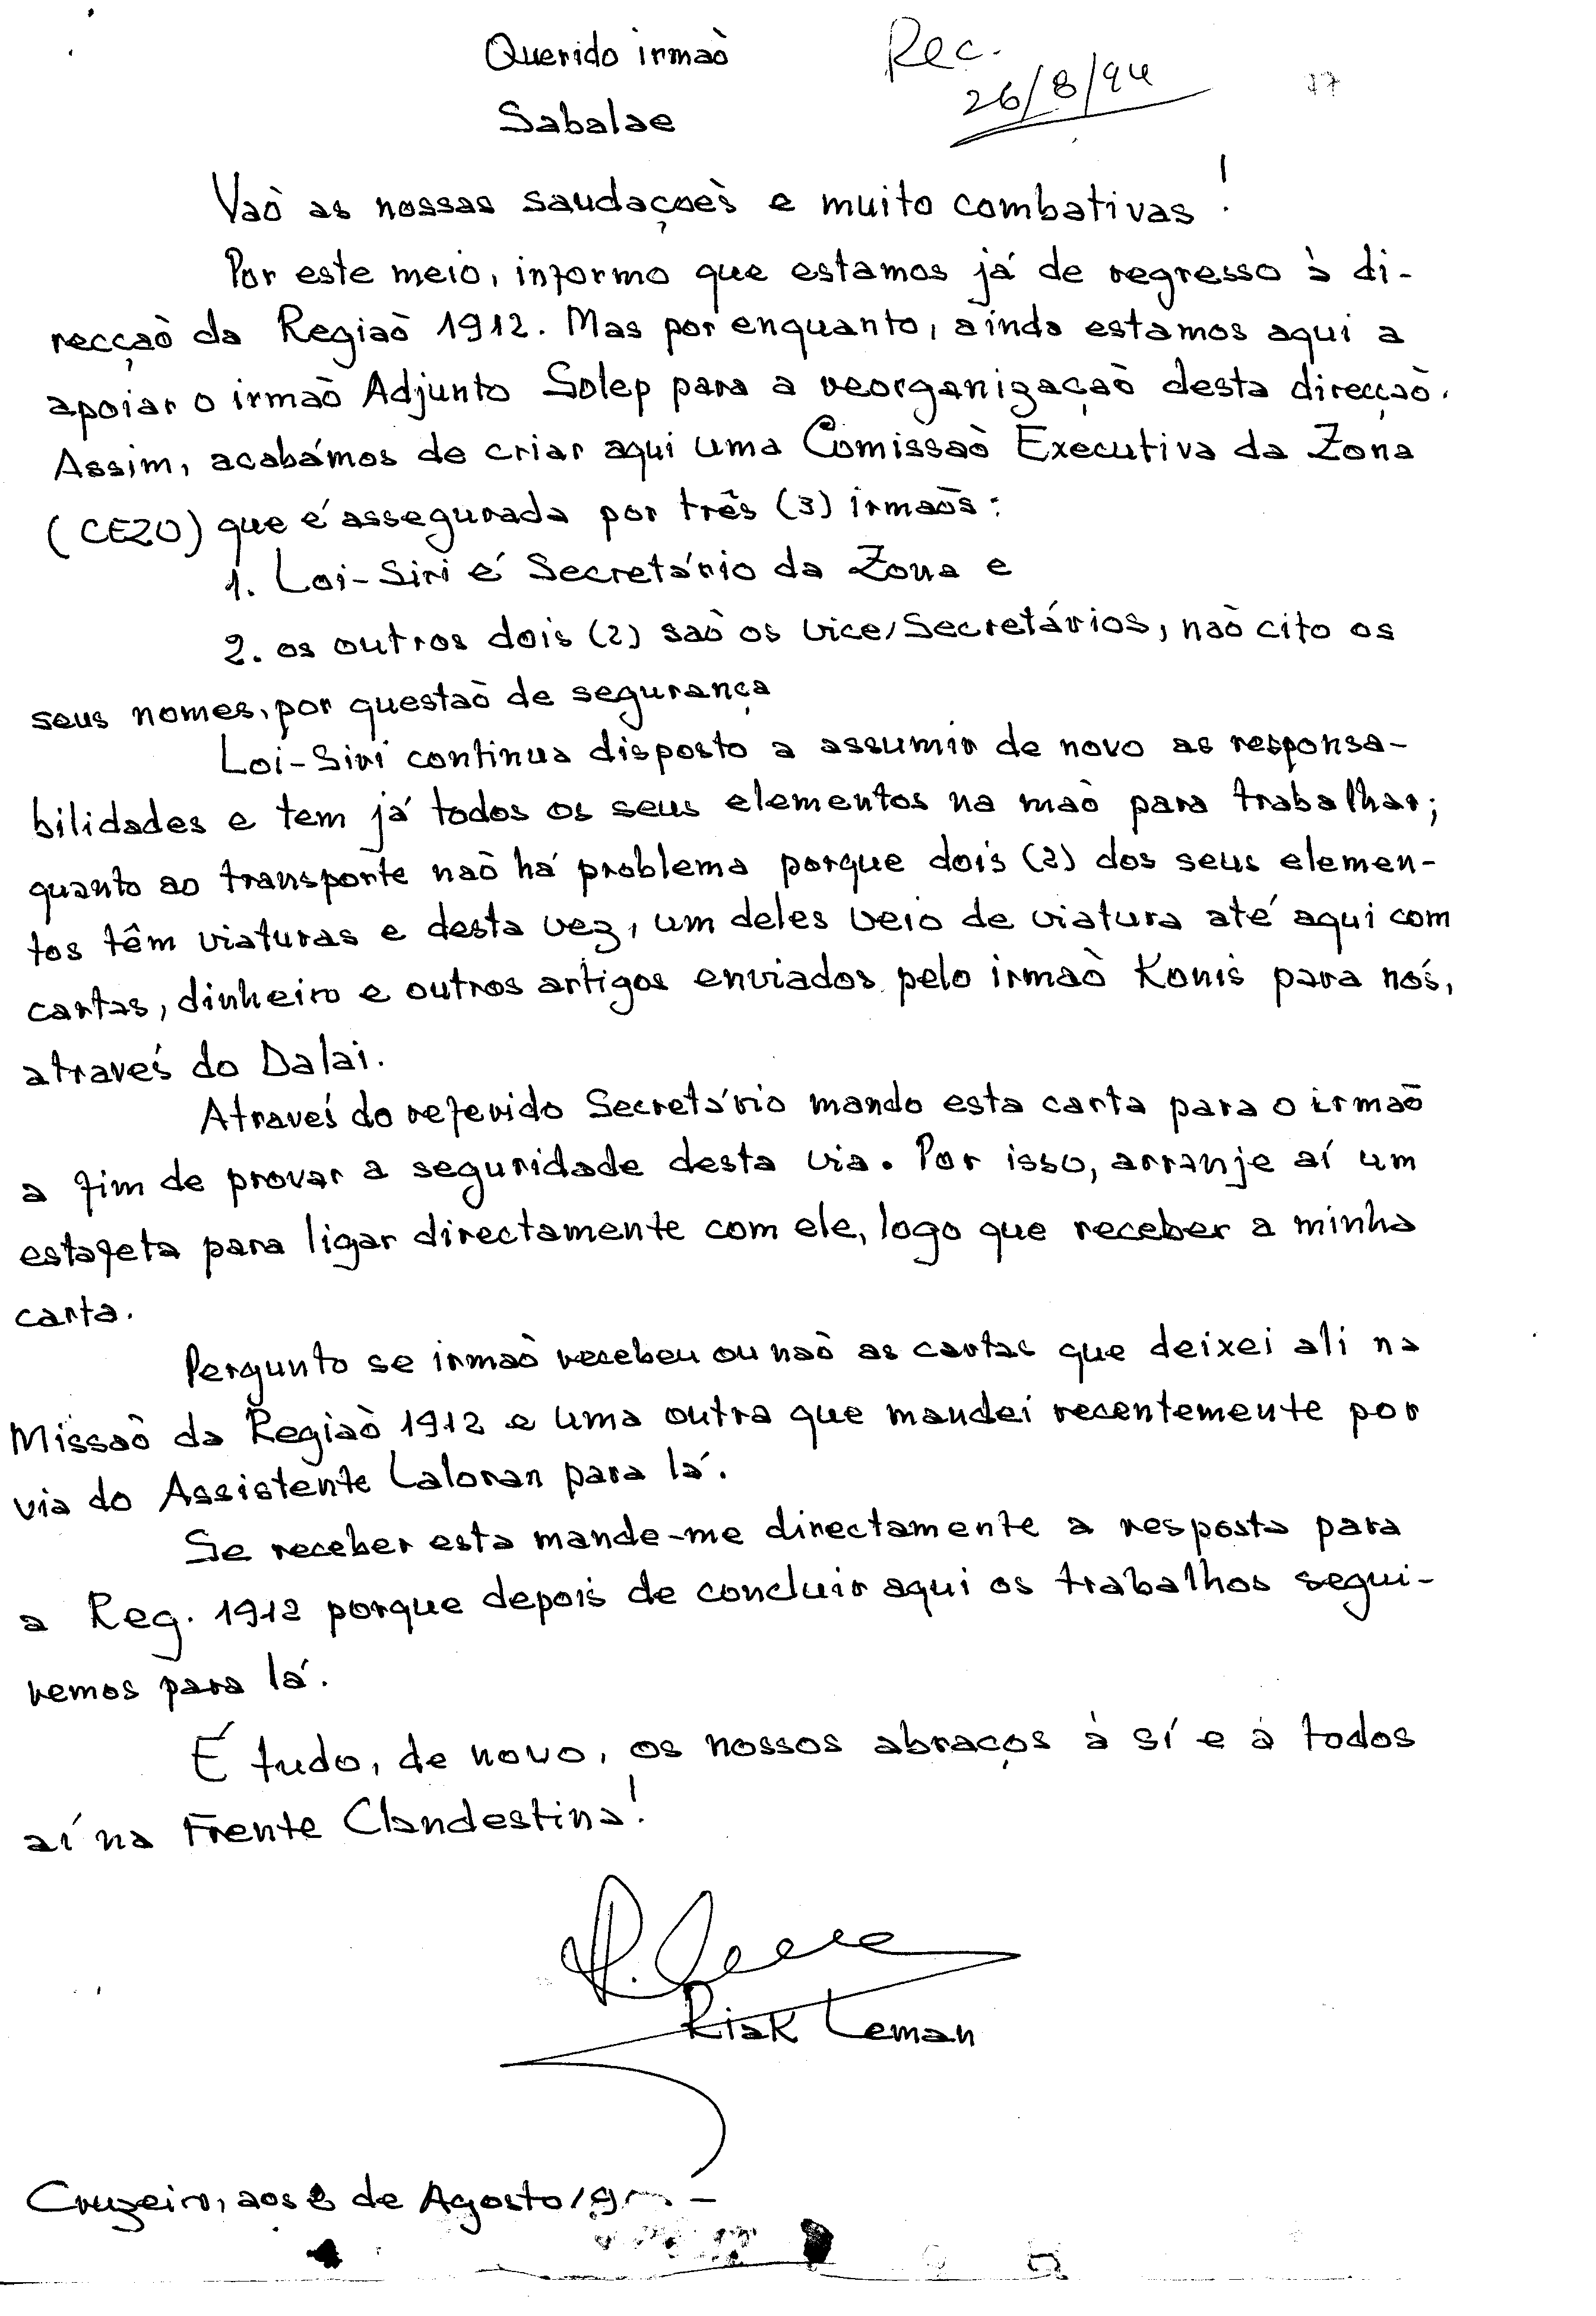 Querido irmaò
Rec.
26/8/94
17
Sabalae
Vaò as nossas saudaçoès e muito combativas!
Por este meio, informo que estamos já de regresso à di-
recçaò da Regiaò 1912. Mas por enquanto, ainda estamos aqui a
apoiar o irmaò Adjunto Solep para a reorganizaçaò desta direcçaò.
Assim, acabámos de criar aqui uma Comissaò Executiva da Zona
(CEZO) que é assegurada por três (3) irmaõs:
1. Loi-Siri é Secretário da Zona e
2. os outros dois (2) saò os vice/Secretários, naò cito os
seus nomes, por questaò de segurança
Loi-Siri continua disposto a assumir de novo as responsa-
bilidades e tem já todos os seus elementos na maò para trabalhar;
quanto ao transporte naò há problema porque dois (2) dos seus elemen-
tos têm viaturas e desta vez, um deles veio de viatura até aqui com
cartas, dinheiro e outros artigos enviados pelo irmaò Konis para nós,
através do Dalai.
Através do referido Secretário mando esta carta para o irmaõ
a fim de provar a seguridade desta via. Por isso, arranje aí um
estafeta para ligar directamente com ele, logo que receber a minha
carta.
Pergunto se irmaò recebeu ou naò as cartas que deixei ali na
Missaò da Regiaò 1912 e uma outra que mandei recentemente por
via do Assistente Laloran para lá.
Se receber esta mande-me directamente a resposta para
a Reg. 1912 porque depois de concluir aqui os trabalhos segui-
remos para lá.
É tudo, de novo, os nossos abraços à sí e à todos
aí na Frente Clandestina!
Riak Leman
Cruzeiro, aos de Agosto/9